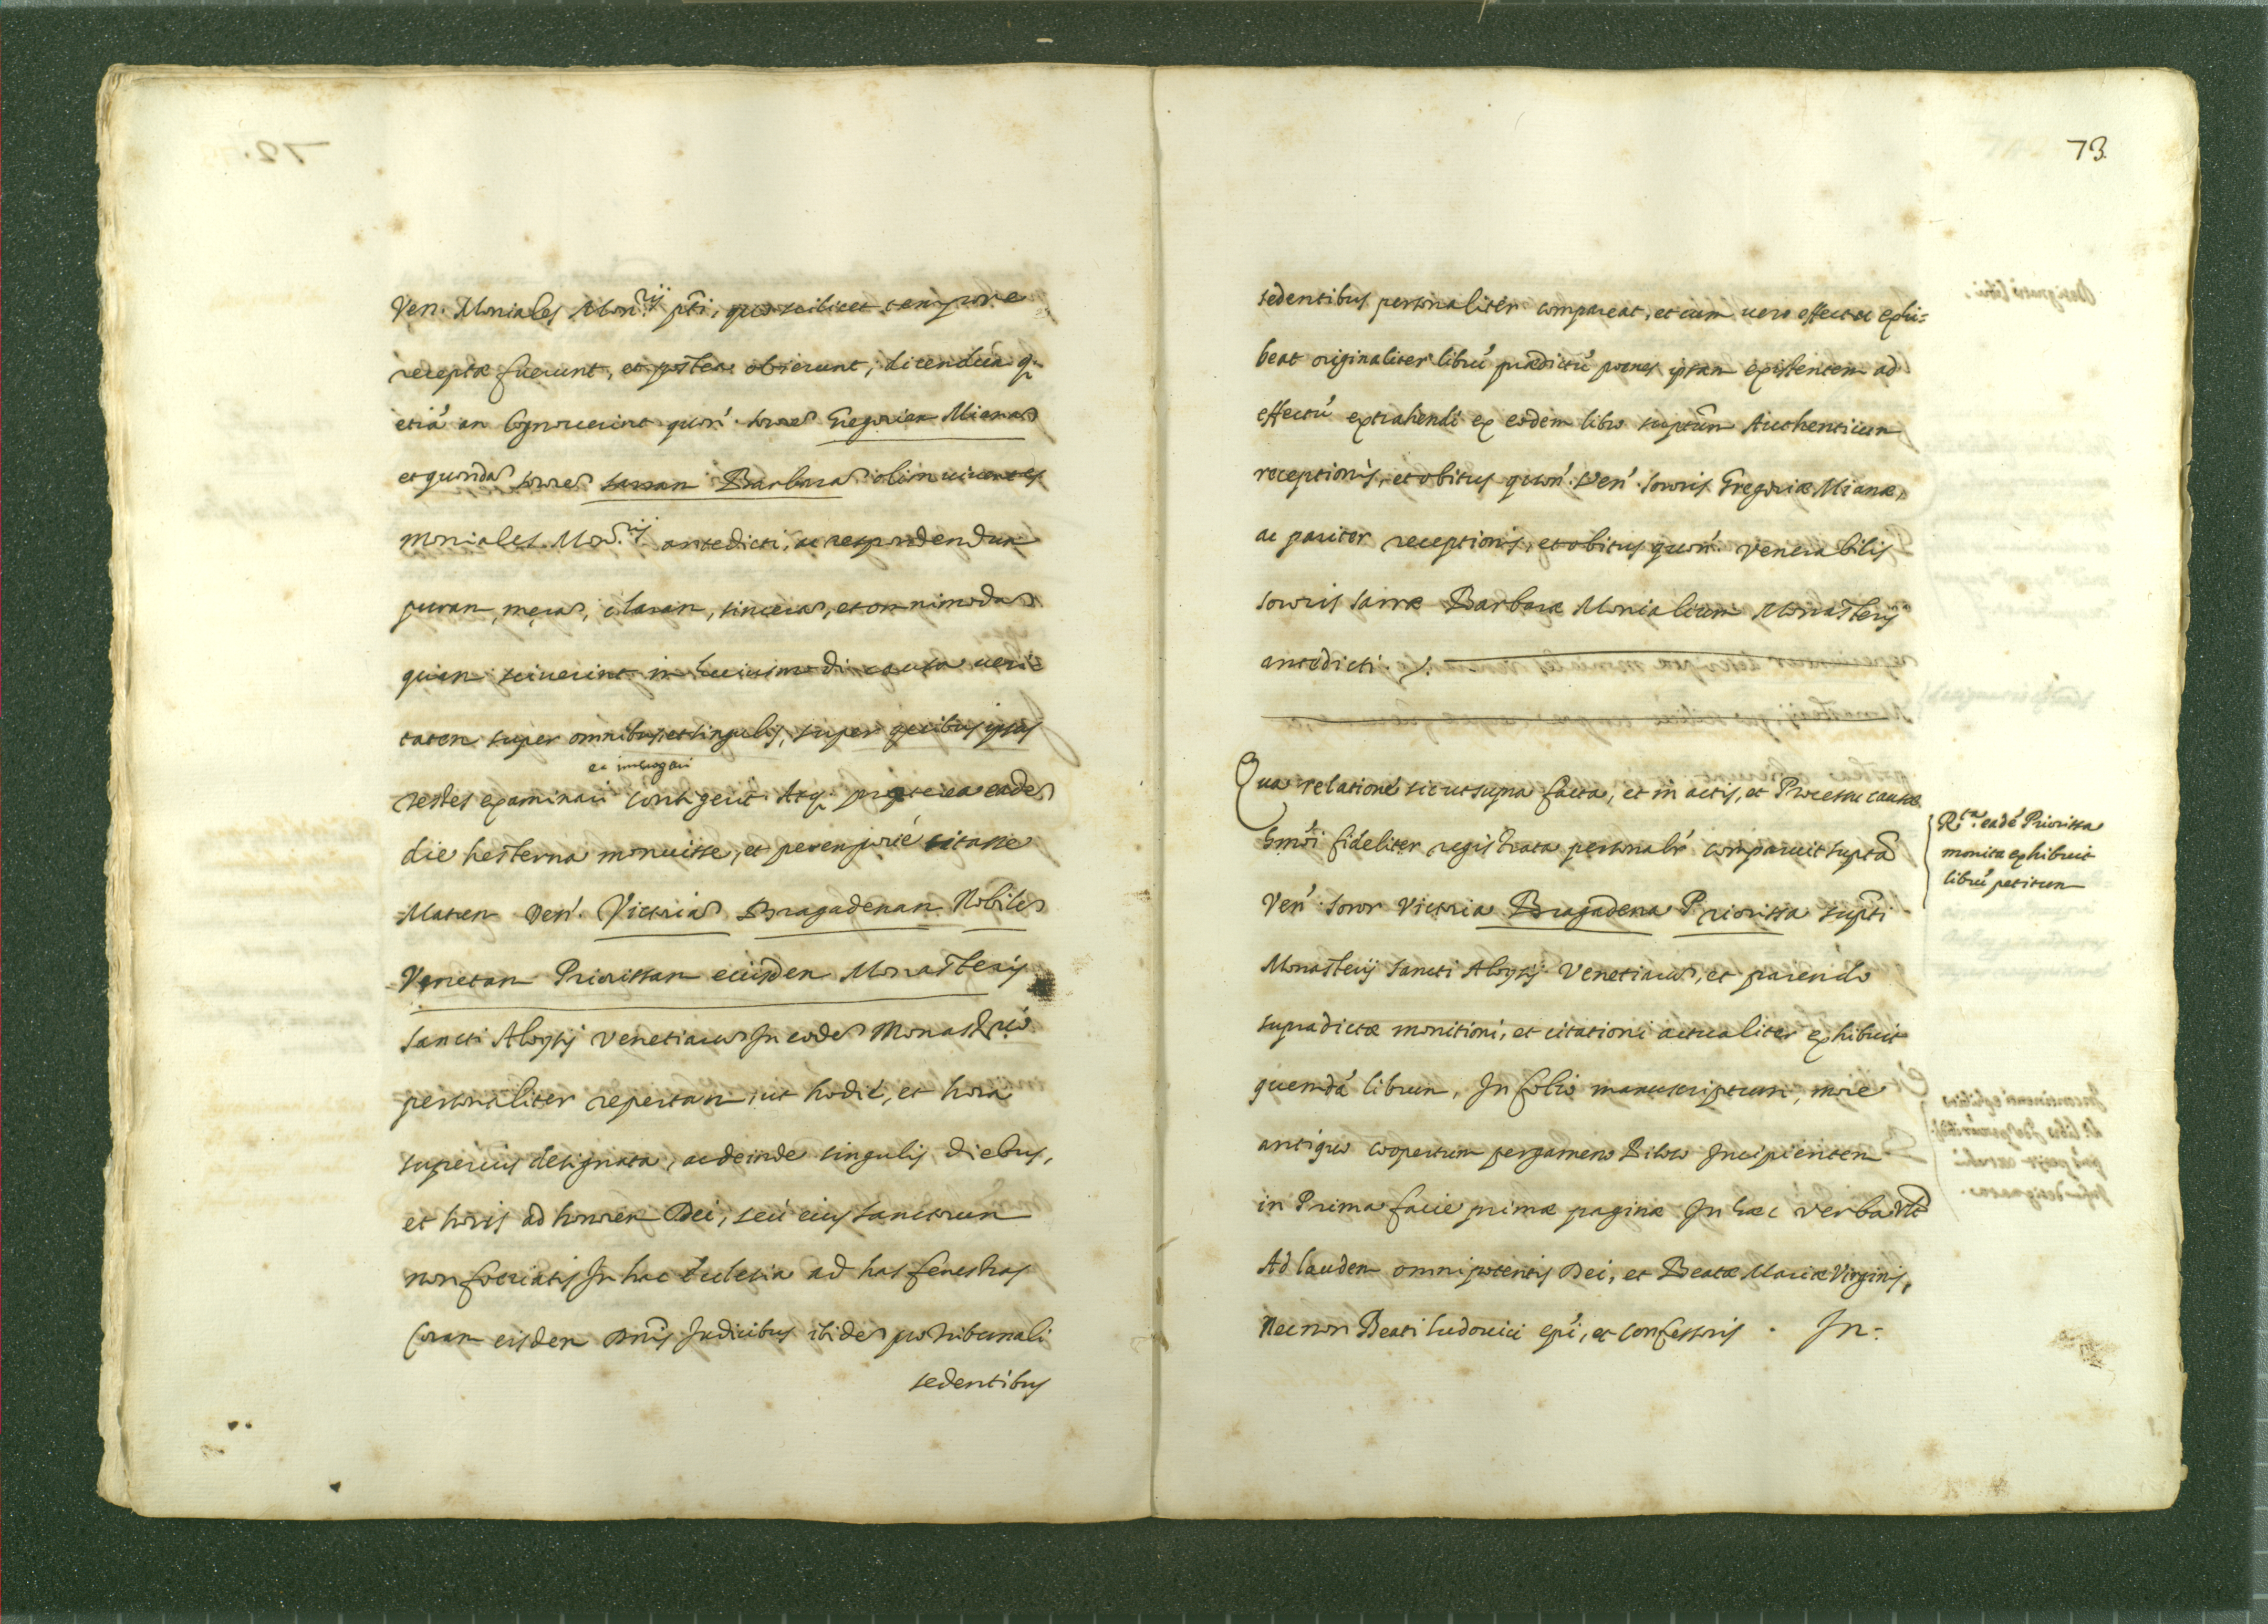 Ven. Moniales Mon.rij pti, quo scilicet tempore
receptæ fuerunt, et postea obierunt, dicendum q;
etiã an Cognoverint quon. soror Gregoriam Mianam
et quondã sororem sarram Barbaram olim viventes
moniales Mon.rij antedicti, ac respondendum
puram, meram, claram, sinceram, et omnimodam
quam sciverint in huiusmodi causa veri=
tatem super omnibus, et singulis, super quibus ipsos
et interrogari
testes examinari Contigerit Atq; propterea eadem
die hesterna monuisse, et peremptorie citasse
Matrem Ven. Victoriam Bragadenam Nobilem
Venetam Priorissam eiusdem Monasterij
Sancti Aloysij Venetiarum In eodem Monasterio
personaliter repertam, ut hodie, et hora
superius designata, ac deinde singulis diebus,
et horis ad honorem Dei, seu eius sanctorum
non feriatis In hac Ecclesia ad has fenestras
Coram eisdem Dnis Judicibus ibidem pro tribunali
sedentibus
73.
sedentibus personaliter compareat, et cum vero effectu exhi=
beat originaliter librũ prædictũ poenes ipsam existentem ad
effectũ extrahendi ex eodem libro suptum Authenticum
receptionis, et obitus quon. Ven. Sororis Gregoriæ Mianæ,
ac pariter receptionis, et obitus quon. venerabilis
sororis sarræ Barbaræ Monialium Monasterij
antedicti.
Qua relatione sicut supra facta, et in actis, et Processu causæ
hmõi fideliter registrata personalr comparuit supta
Ven. Soror Victoria Bragadena Priorissa supti
Monasterij Sancti Aloysij Venetiarum, et parendo
supradictæ monitioni, et citationi actualiter exhibuit
quemdã librum, In folio manuscriptum, more
antiquo coopertum pergameno Incipientem
in Prima facie primæ paginæ In hæc verba vlt
Ad laudem omnipotentis Dei, et Beatæ Mariæ Virginis,
Necnon Beati Ludovici epi, et confessoris. In=
R.da eadẽ Priorissa
monita exhibuit
librũ petitum